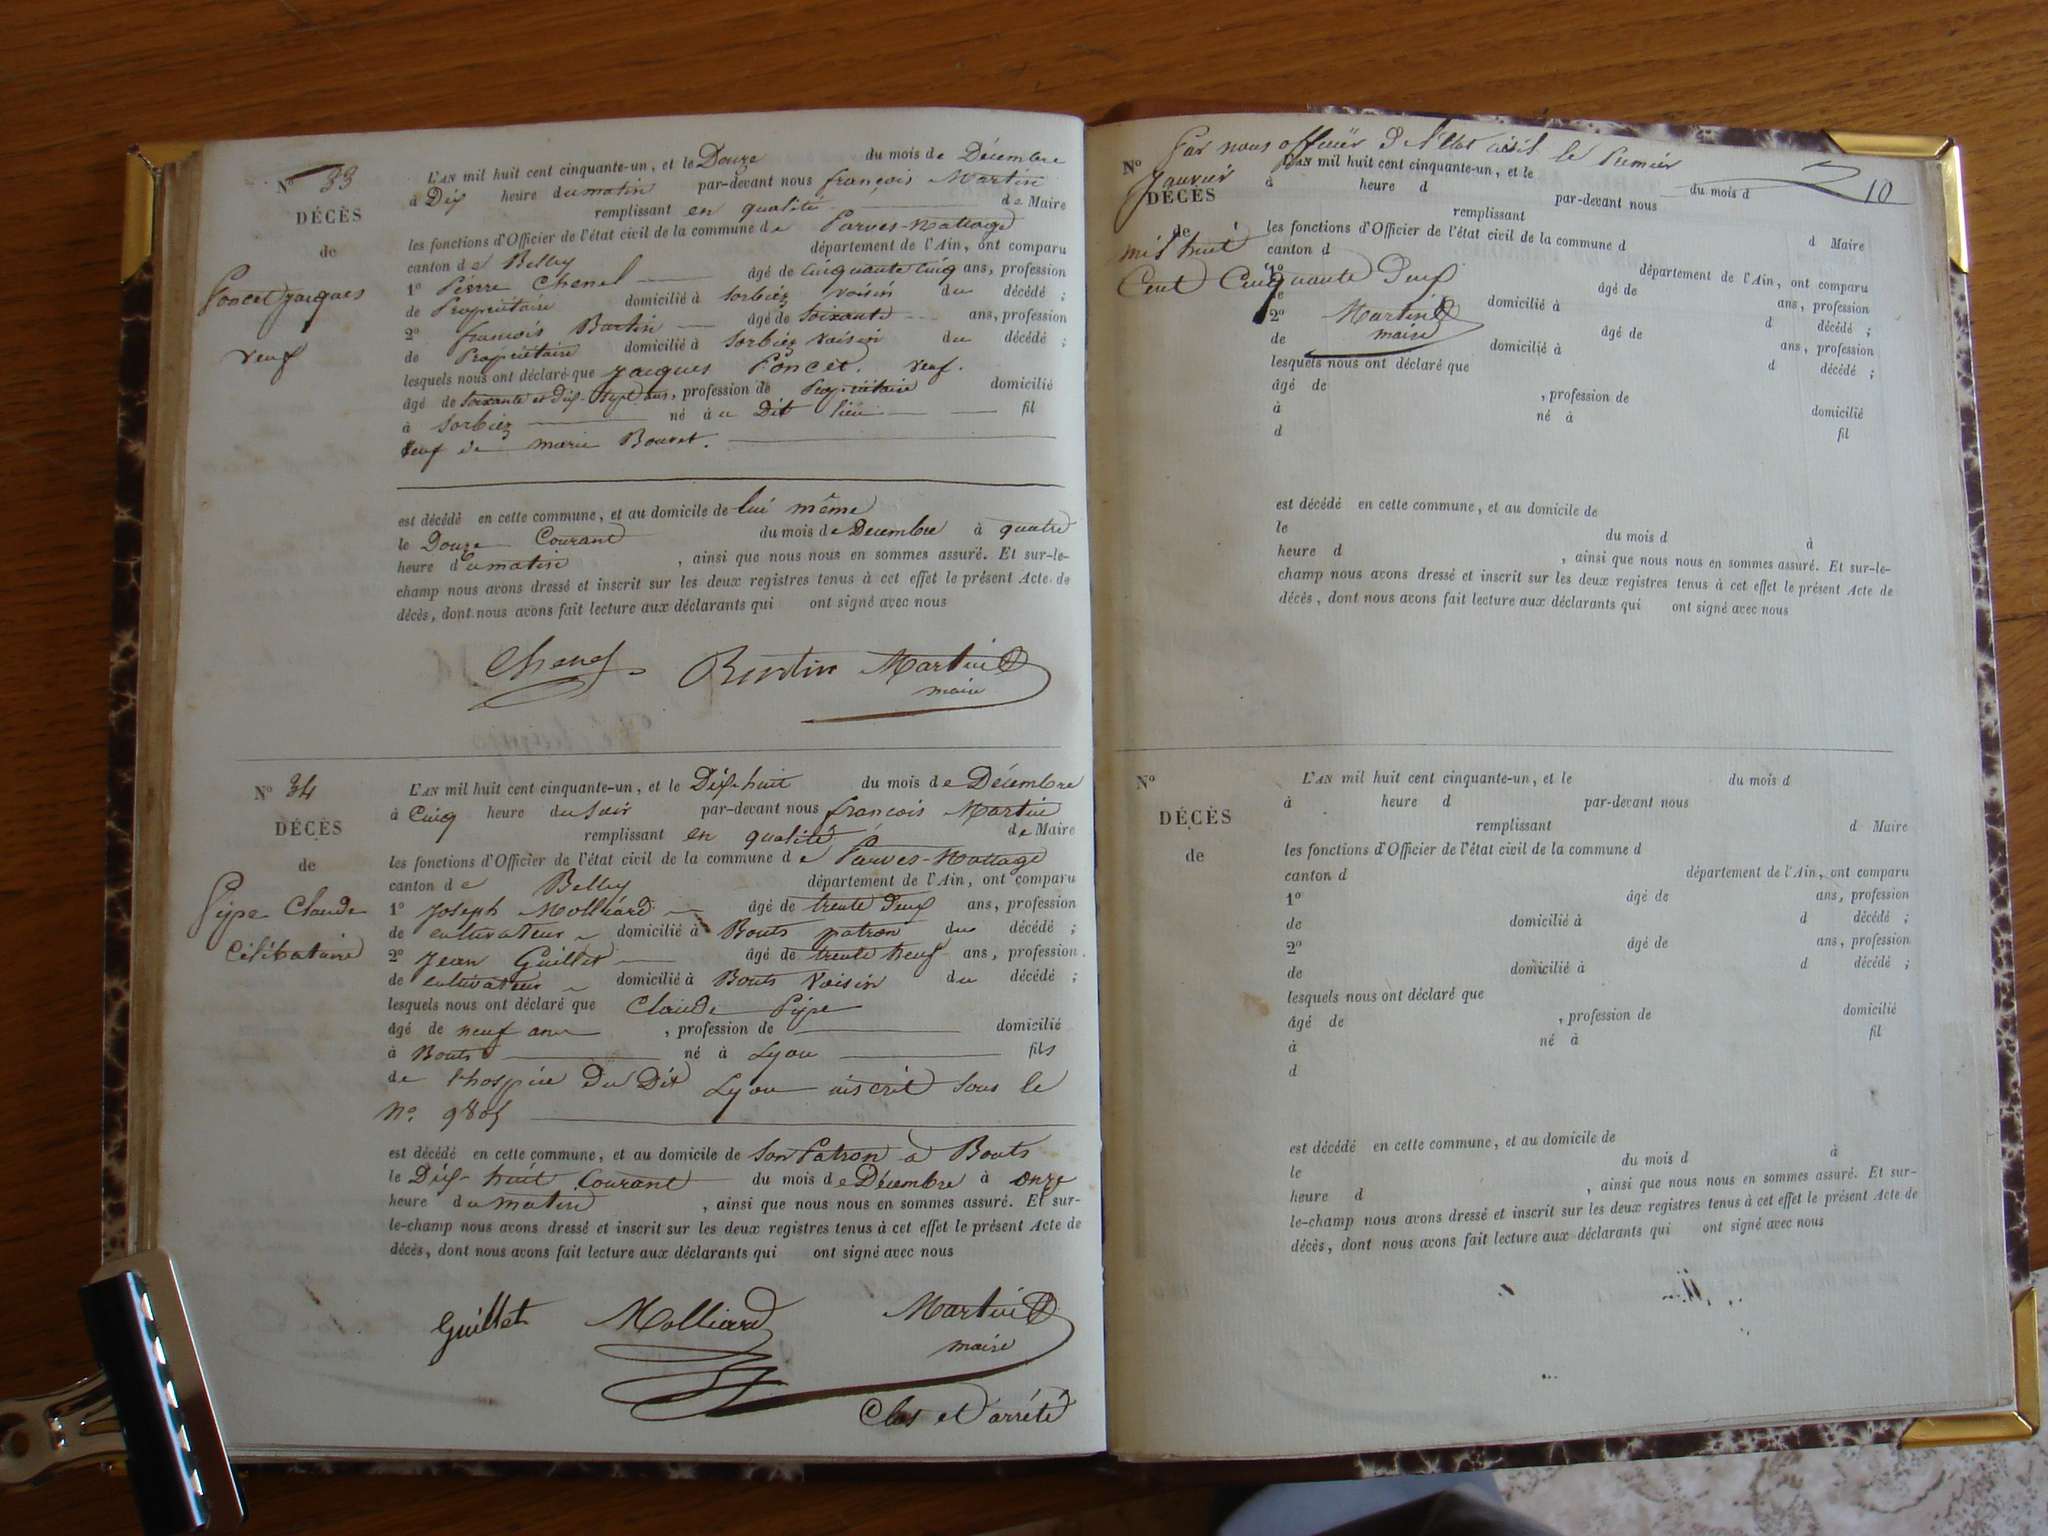 N° 33
DÉCÈS
de
Poncet Jacques
veuf
L'AN mil huit cent cinquante-un, et le Douze du mois de Décembre
à Dix heure du matin par-devant nous françois Martin
remplissant en qualité de Maire
les fonctions d'Officier de l'état civil de la commune de Parves-Nattage
canton de Belley département de l'Ain, ont comparu
1° Pierre Chenel âgé de Cinquante Cinq ans, profession
de Propriétaire domicilié à Sorbiez voisin du décédé ;
2° françois Burtin âgé de Soixante ans, profession
de Propriétaire domicilié à Sorbiez Voisin du décédé ;
lesquels nous ont déclaré que Jacques Poncet. veuf.
âgé de Soixante et dix-sept ans, profession de Propriétaire domicilié
à Sorbiez né à u Dit lieu fil
veuf de marie Bouvet.
est décédé en cette commune, et au domicile de lui même
le Douze Courant du mois de Decembre à quatre
heure du matin , ainsi que nous nous en sommes assuré. Et sur-le-
champ nous avons dressé et inscrit sur les deux registres tenus à cet effet le présent Acte de
décès, dont nous avons fait lecture aux déclarants qui ont signé avec nous
Chenel Burtin Martin
maire
N° 34
DÉCÈS
de
Pipe Claude
Célibataire
L'AN mil huit cent cinquante-un, et le Dix-huit du mois de Décembre
à Cinq heure du Soir par-devant nous françois Martin
remplissant en qualité de Maire
les fonctions d'Officier de l'état civil de la commune de Parves-Nattage
canton de Belley département de l'Ain, ont comparu
1° Joseph Molliard âgé de trente deux ans, profession
de cultivateur domicilié à Bouts patron du décédé ;
2° Jean Guillet âgé de trente neuf ans, profession
de cultivateur domicilié à Bouts Voisin du décédé ;
lesquels nous ont déclaré que Claude Pipe
âgé de neuf ans , profession de domicilié
à Bouts né à Lyon fils
de l'hospice Du Dit Lyon inscrit Sous le
N°. 9805
est décédé en cette commune, et au domicile de Son Patron à Bouts
le Dix-huit Courant du mois de Décembre à onze
heure du matin , ainsi que nous nous en sommes assuré. Et sur-
le-champ nous avons dressé et inscrit sur les deux registres tenus à cet effet le présent Acte de
décès, dont nous avons fait lecture aux déclarants qui ont signé avec nous
Guillet Molliard Martin
maire
Clos et arrêté
Par nous officier de l'état civil le Premier
Janvier
mil huit
Cent Cinquante Deux
Martin
maire
10
N°
DÉCÈS
de
L'AN mil huit cent cinquante-un, et le du mois d
à heure d par-devant nous
remplissant d Maire
les fonctions d'Officier de l'état civil de la commune d
canton d département de l'Ain, ont comparu
1° âgé de ans, profession
de domicilié à d décédé ;
2° âgé de ans, profession
de domicilié à d décédé ;
lesquels nous ont déclaré que
âgé de , profession de domicilié
à né à fil
d
est décédé en cette commune, et au domicile de
le du mois d à
heure d , ainsi que nous nous en sommes assuré. Et sur-le-
champ nous avons dressé et inscrit sur les deux registres tenus à cet effet le présent Acte de
décès, dont nous avons fait lecture aux déclarants qui ont signé avec nous
N°
DÉCÈS
de
L'AN mil huit cent cinquante-un, et le du mois d
à heure d par-devant nous
remplissant d Maire
les fonctions d'Officier de l'état civil de la commune d
canton d département de l'Ain, ont comparu
1° âgé de ans, profession
de domicilié à d décédé ;
2° âgé de ans, profession
de domicilié à d décédé ;
lesquels nous ont déclaré que
âgé de , profession de domicilié
à né à fil
d
est décédé en cette commune, et au domicile de
le du mois d à
heure d , ainsi que nous nous en sommes assuré. Et sur-
le-champ nous avons dressé et inscrit sur les deux registres tenus à cet effet le présent Acte de
décès, dont nous avons fait lecture aux déclarants qui ont signé avec nous